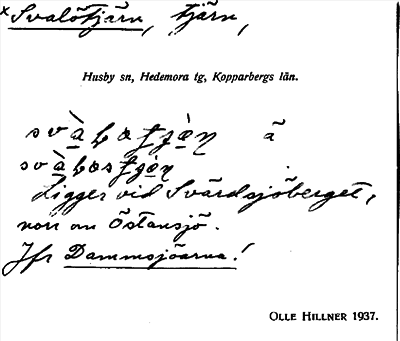 ×Svalötjärn, tjärn,
Husby sn, Hedemora tg, Kopparbergs län.
Ligger vid Svärdsjöberget,
norr om Östansjö.
Jfr Dammsjöarna!
OLLE HILLNER 1937.